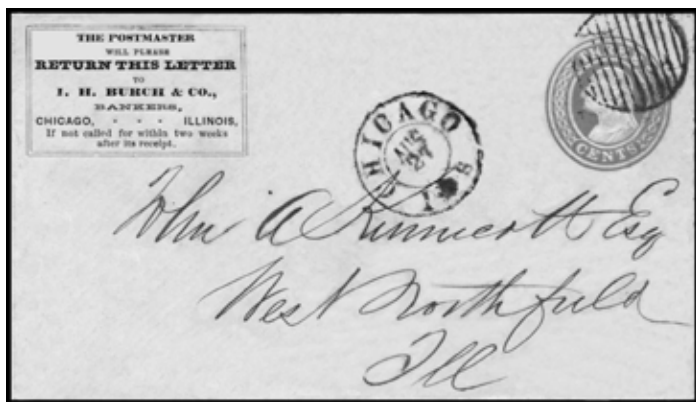 THE POSTMASTER
WILL PLEASE
RETURN THIS LETTER
TO
I. H. BURCH & CO.,
BANKERS,
CHICAGO, - - - ILLINOIS,
If not called for within two weeks
after its receipt.
CHICAGO
AUG
27
CENTS
John A Kennicott Esq
West Northfield
Ill